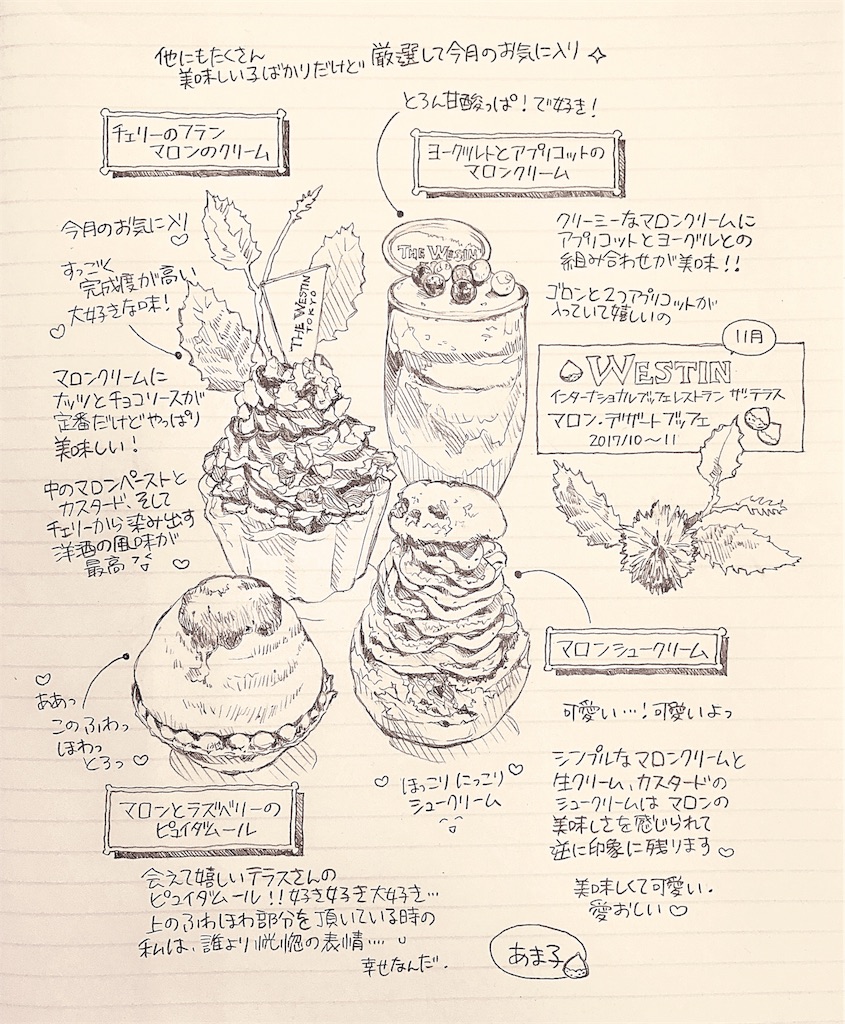 他にもたくさん
美味しい子ばかりだけど 厳選して今月のお気に入り
とろん甘酸っぱ！で好き！
チェリーのフラン
マロンのクリーム
ヨーグルトとアプリコットの
マロンクリーム
今月のお気に入り♡
すっごく
完成度が高い
大好きな味！
♡
マロンクリームに
ナッツとチョコソースが
定番だけどやっぱり
美味しい！
中のマロンペーストと
カスタード、そして
チェリーから染み出す
洋酒の風味が
最高
♡
THE WESTIN
TOKYO
THE WESTIN
クリーミーなマロンクリームに
アプリコットとヨーグルとの
組み合わせが美味！！
ゴロンと2つアプリコットが
入っていて嬉しいの
11月
WESTIN
インターナショナルブッフェレストラン ザ・テラス
マロン・デザートブッフェ
2017/10〜11
マロンシュークリーム
可愛い…！可愛いよっ
シンプルなマロンクリームと
生クリーム、カスタードの
シュークリームは マロンの
美味しさを感じられて
逆に印象に残ります♡
美味しくて可愛い.
愛おしい♡
♡
ああっ
このふわっ
ほわっ
とろっ♡
♡ ほっこり にっこり ♡
シュークリーム
マロンとラズベリーの
ピュイダムール
会えて嬉しいテラスさんの
ピュイダムール！！好き好き大好き…
上のふわほわ部分を頂いている時の
私は、誰より恍惚の表情…
幸せなんだ.
あま子